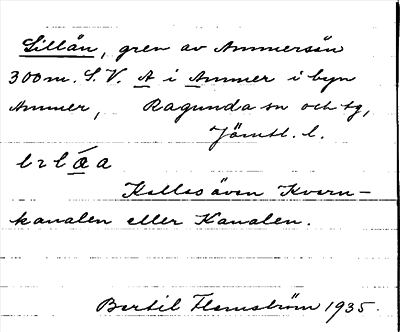 Lillån, gren av Ammerån
300m. S.V. A i Ammer i byn
Ammer, Ragunda sn och tg,
Jämtl. l.
Kallas även Kvarn-
kanalen eller Kanalen.
Bertil Flemström 1935.